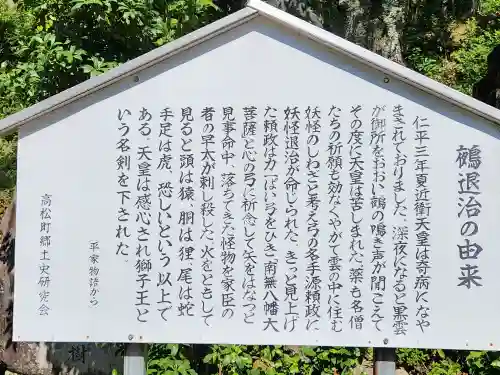 鵺退治の由来
仁平三年夏近衛天皇は奇病になや
まされておりました、深夜になると黒雲
が御所をおおい鵺の鳴き声が聞こえて
その度に天皇は苦しまれた、薬も名僧
たちの祈願も効なくやがて雲の中に住む
妖怪のしわざと考え弓の名手源頼政に
妖怪退治が命じられた、きっと見上げ
た頼政な力一ぱい弓をひき「南無八幡大
菩薩」と心の弓に祈念して矢をはなつと
見事命中、落ちてきた怪物を家臣の
者の早太が刺し殺した、火をともして
見ると頭は猿、胴は狸、尾は蛇
手足は虎、恐しいという以上で
ある、天皇は感心され獅子王と
いう名剣を下された、
平家物語から
高松町郷土史研究会
樹